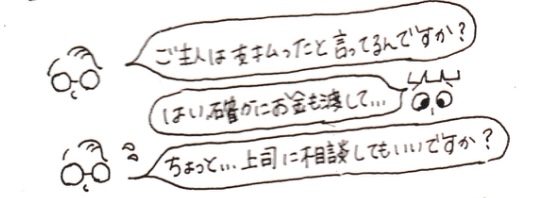 ご主人は支払ったと言ってるんですか？
はい確かにお金も渡して…
ちょっと…上司に相談してもいいですか？